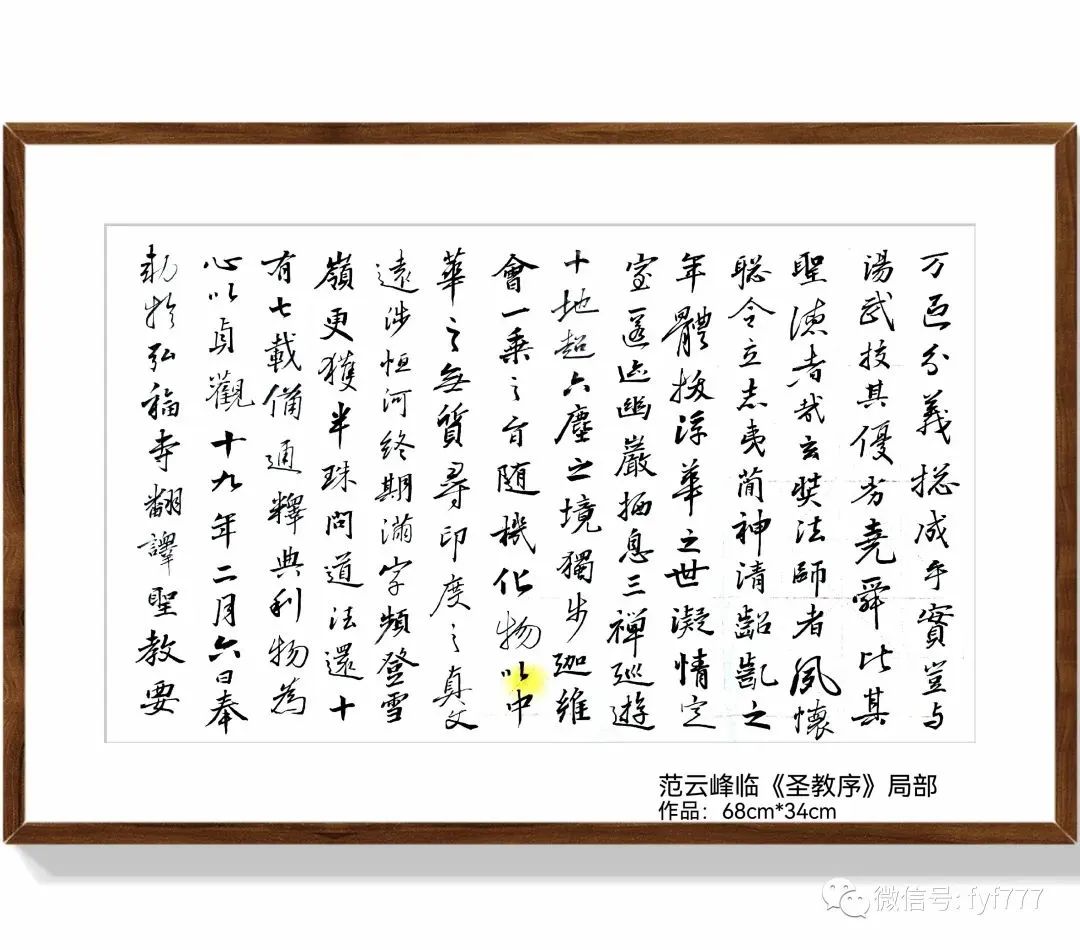 万区分義揔成乎實豈与
湯武挍其優劣堯舜比其
聖德者哉玄奘法師者夙懷
聡令立志夷簡神清齠齓之
年體拔浮華之世凝情定
室匿迹幽巖栖息三禅巡遊
十地超六塵之境獨步迦維
會一乗之旨随機化物以中
華之無質尋印度之真文
遠涉恒河終期滿字頻登雪
嶺更獲半珠問道法還十
有七載備通釋典利物為
心以貞觀十九年二月六日奉
勅於弘福寺翻譯聖教要
范云峰临《圣教序》局部
作品：68cm*34cm
微信号: fyf777